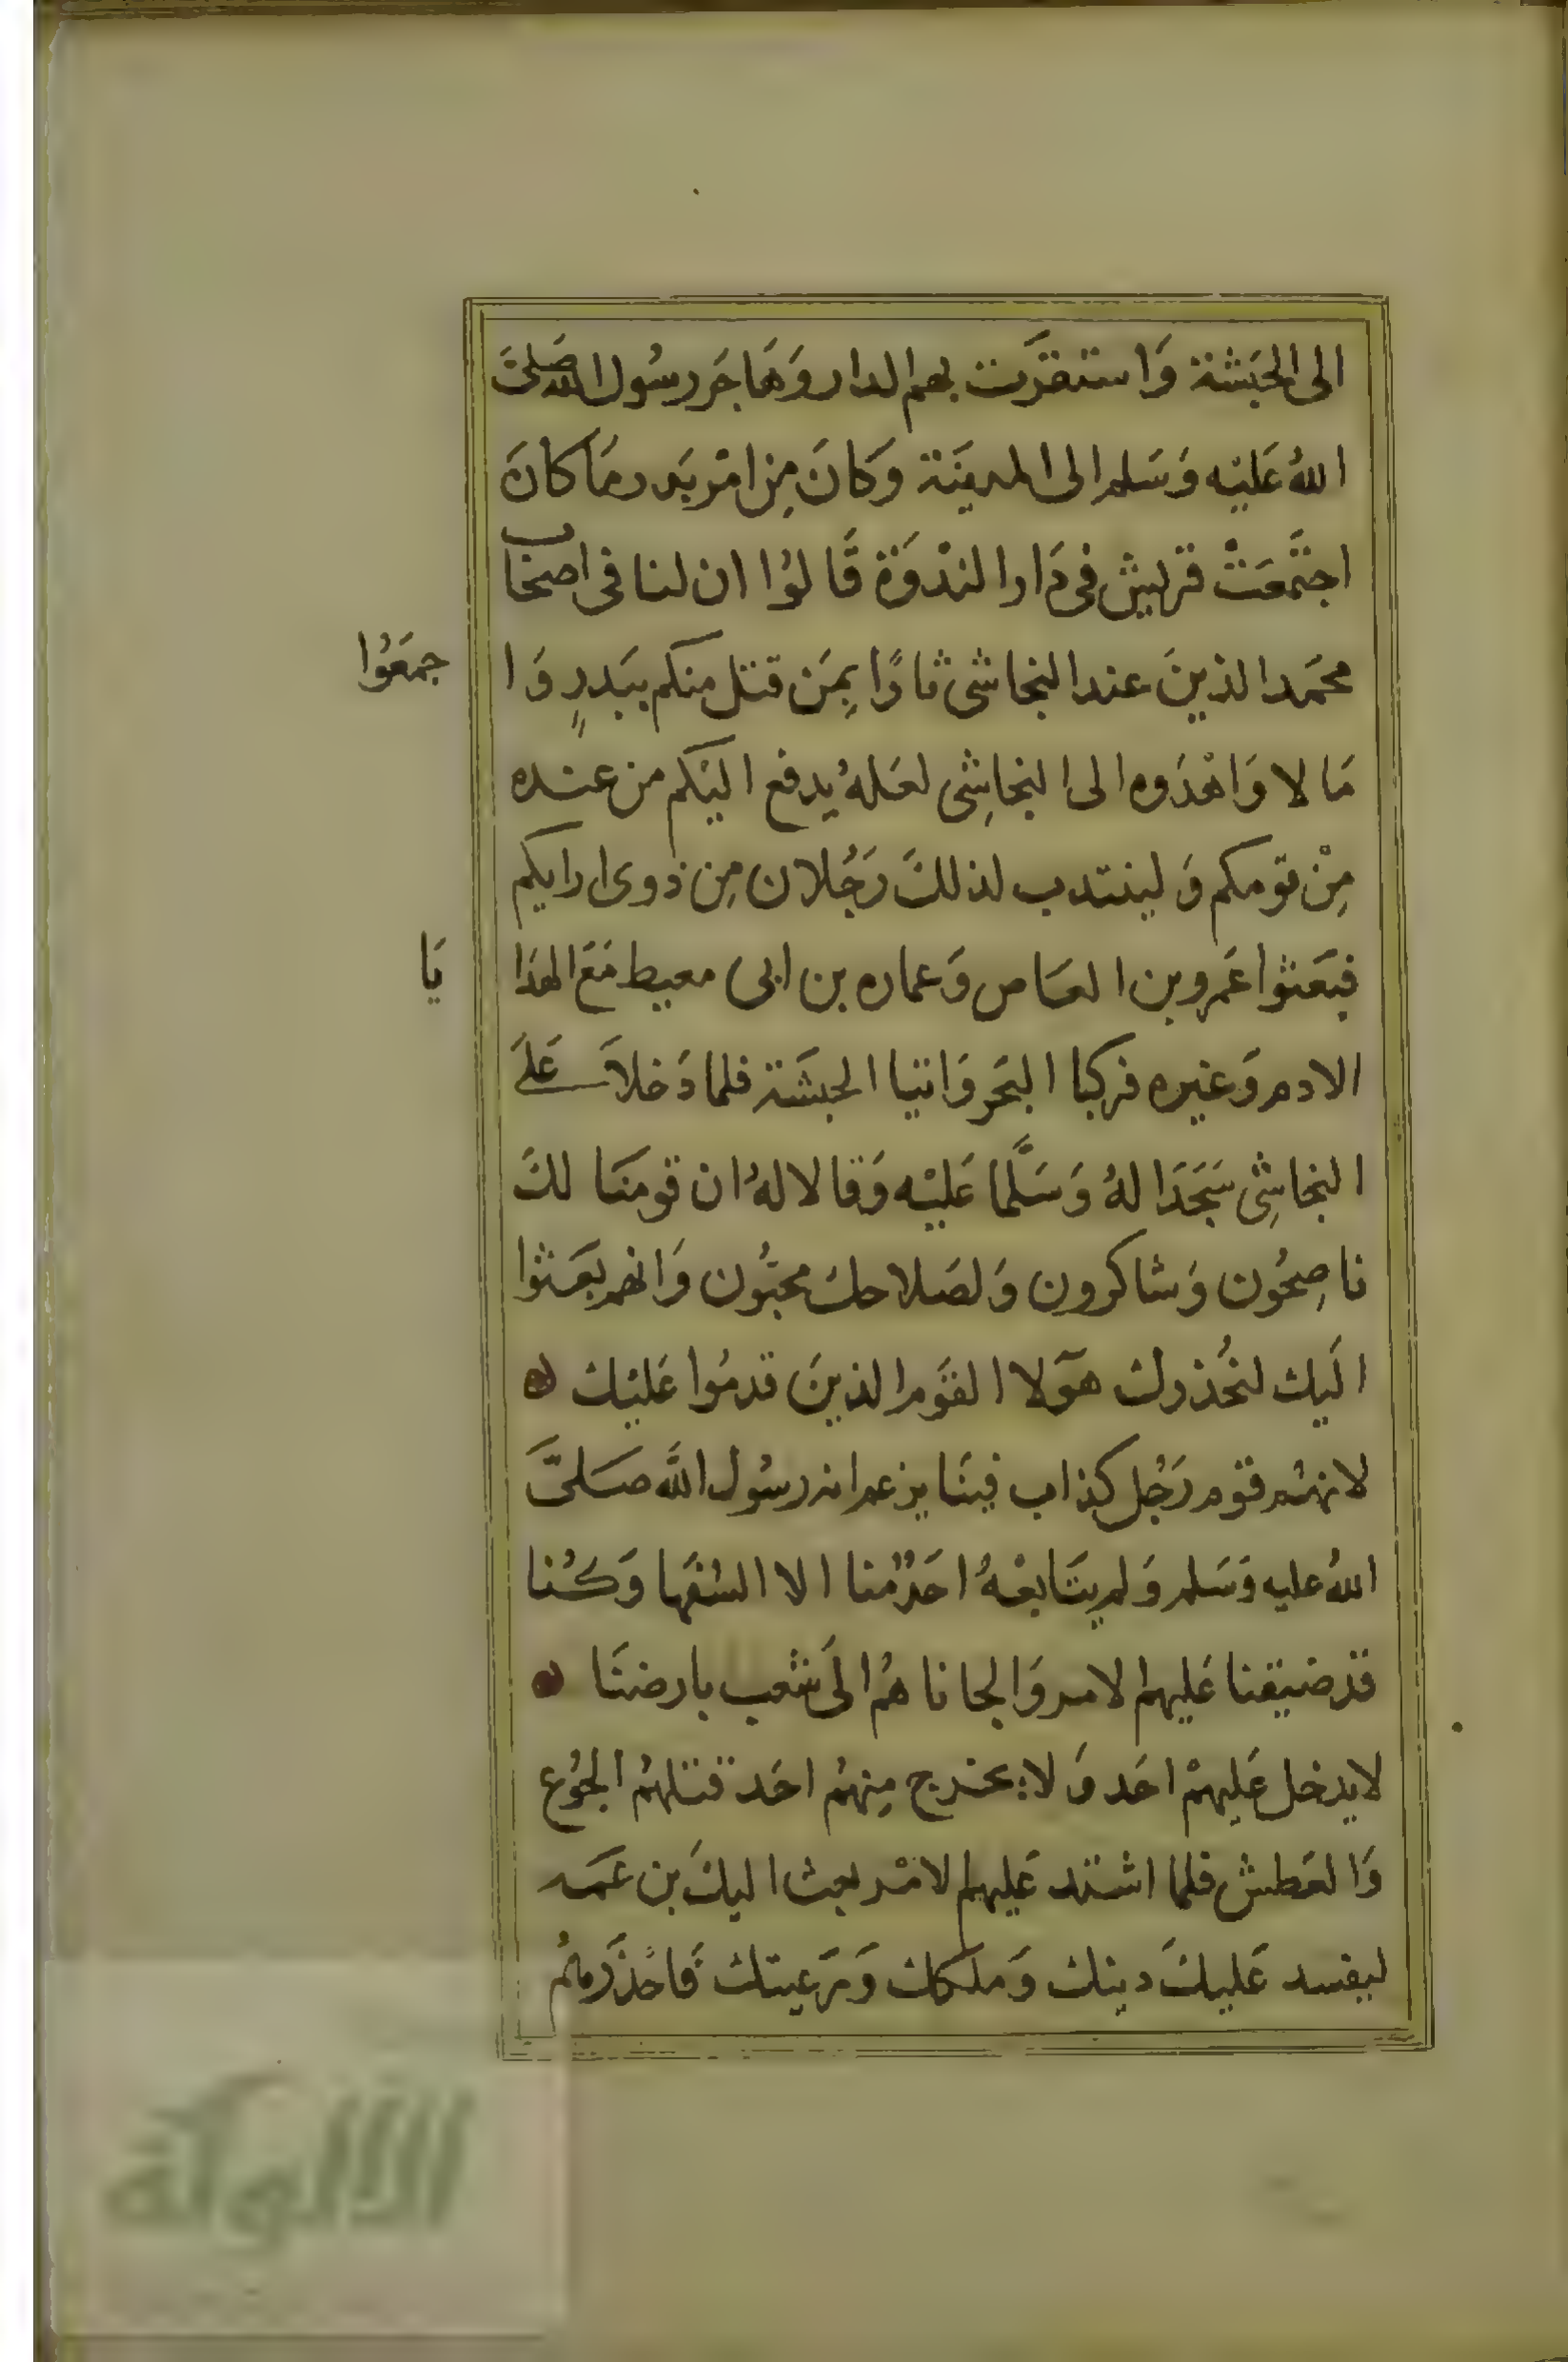 الى الحبَشة وَاستقرَت بهم الدار وَهَاجَر رسُول الله صَلىَّ
اللهُ عَليْه وَسَلم الى المدينَة وَكانَ مِن امْر بَدر مَا كانَ
اجتَمعَتْ قريش فى دَار الندْوَة قَالوُا ان لنا فى اصحَاب
محَمد الذينَ عند النجاشى ثارًا بِمَن قتل منكم ببَدرٍ وَا
جمعَوُا
مَالا وَاهْدَوه الى النجاشِى لعَلهُ يدفع اليْكم من عنده
مِنْ قومكم وَلينتدب لذلكَ رَجُلان مِن ذوى ارايكم
فبَعَثوا عَمرو بن العَاص وَعماره بن ابى معيط مَعَ الهدَا
يَا
الادم وَغيره فركبا البَحر وَاتيا الحبشَة فلما دَخلاَ عَلىَ
النجاشِى سَجَدَا لهُ وَسَلَّما عَليْه وَقالا لهُ ان قومَنَا لكَ
ناصِحُون وَشاكرون وَلصَلاحك محبُّون وَانهم بعَثوا
اليَك لنحُذرك هوٓلا القوَم الذينَ قدمُوا عَليْك
لانهُم قوم رَجُل كذاب فينَا يزعم انه رسُول الله صَلىَّ
اللهُ عليه وَسَلم وَلم يتَابعْهُ احَدٌ منا الا السُفهَا وَكُنا
قدْ ضيَقنا عَليهم الامر وَالجانا همُ الىَ شعب بارضنَا
لا يدخل عَليهمْ احَد وَلا يخرج مِنهُم احَد قتلهُم الجُوُع
وَالعَطش فلما اشتد عَليهم الامْر بعث اليكَ بن عَمه
ليفسد عَليكَ دينك وَملكك وَرَعيتك فَاحْذَرهُم
الألوكة